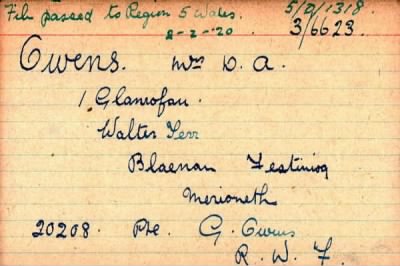 File passed to Region 5 Wales.
5/D/1318
8-2-20.
3/6623.
Owens. Mrs D. A.
1 Glanrofau.
Walter Terr
Blaenau Festiniog
Merioneth
20208 Pte G. Owens
R. W. F.